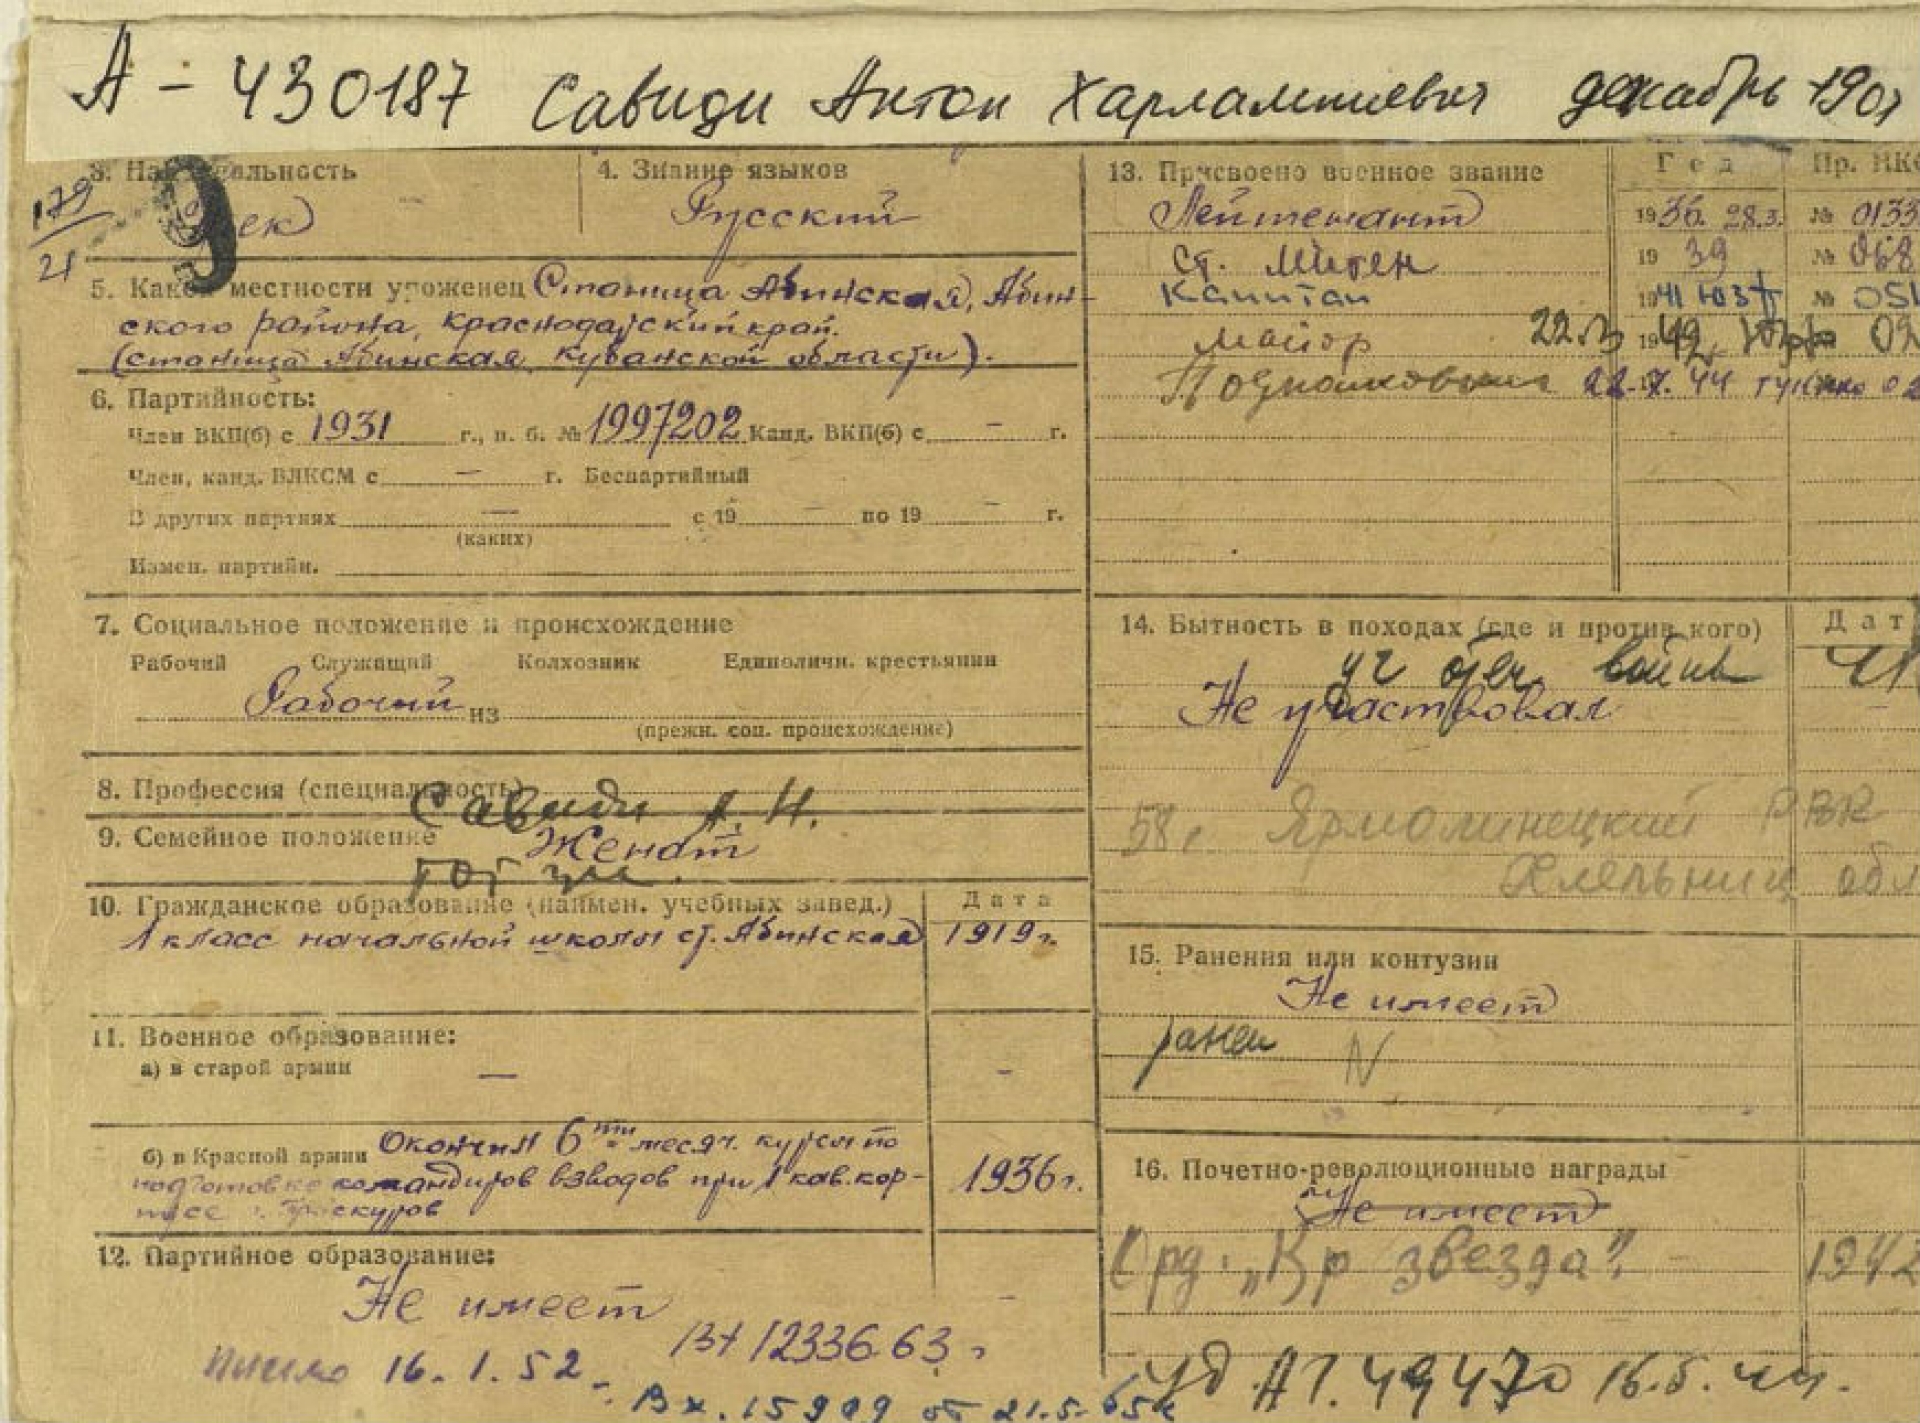 А - 430187 Савиди Антон Харлампиевич декабрь 190
179
21
9
3. На альность
ек
4. Знание языков
Русский
5. Какой местности уроженец Станица Абинская, Абин-
ского района, Краснодарский край.
(станица Абинская, Кубанской области).
6. Партийность:
Член ВКП(б) с 1931 г., п. б. № 1997202 Канд. ВКП(б) с — г.
Член, канд. ВЛКСМ с — г. Беспартийный
В других партиях — с 19 — по 19 — г.
(каких)
Измен. партийн.
7. Социальное положение и происхождение
Рабочий Служащий Колхозник Единоличн. крестьянин
Рабочий из
(прежн. соц. происхождение)
8. Профессия (специальность)
Савиди А. Н.
9. Семейное положение Женат
10. Гражданское образование (наимен. учебных завед.) Дата
1 класс начальной школы ст. Абинская 1919г.
11. Военное образование:
а) в старой армии — -
б) в Красной армии Окончил 6ти месяч. курсы по
подготовке командиров взводов при 1 кав. кор-
пусе г. Проскуров 1936г.
12. Партийное образование:
Не имеет
Вх 12336 63г
письмо 16.1.52
Вх. 15909 от 21.5.65г
13. Присвоено военное звание Год Пр. НКО
Лейтенант 1936. 28.3. № 0133
Ст. Лейтен 1939 № 068
Капитан 1941 ЮЗФ № 051
майор 22.3 1942 02
Подполковник 22.7.44 02
14. Бытность в походах (где и против кого) Дат
уч отеч. войны 41
Не участвовал
58г. Ярмолинецкий РВК
Хмельниц обл
15. Ранения или контузии
Не имеет
ранен
16. Почетно-революционные награды
Не имеет
Орд. „Кр звезда". - 1942
Уд А Г. 49470 16.5.44.